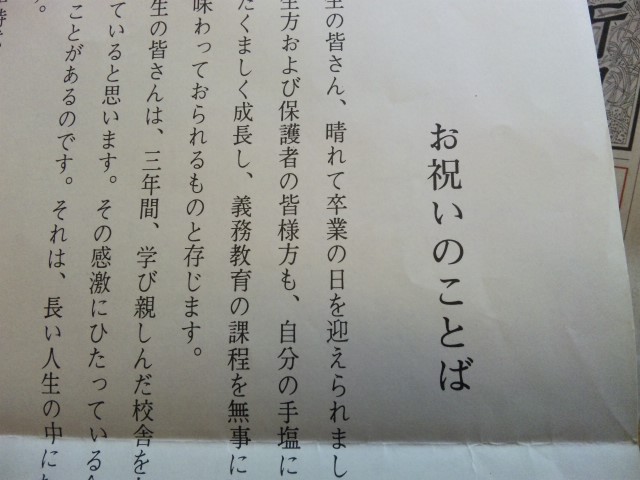 お祝いのことば
生の皆さん、晴れて卒業の日を迎えられまし
生方および保護者の皆様方も、自分の手塩に
たくましく成長し、義務教育の課程を無事に
味わっておられるものと存じます。
生の皆さんは、三年間、学び親しんだ校舎を
ていると思います。その感激にひたっている
ことがあるのです。それは、長い人生の中に
す。